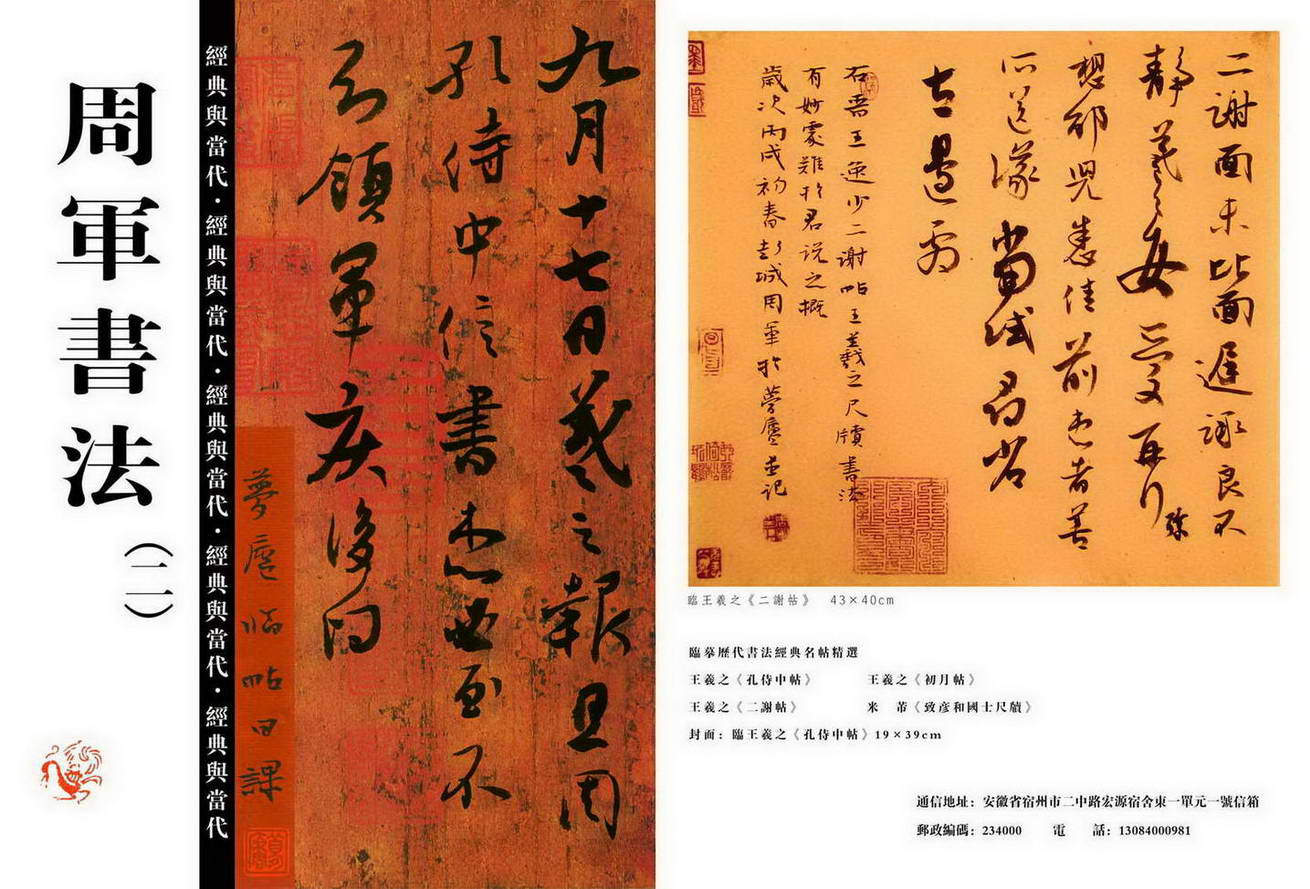 周軍書法
（二）
經典與當代·經典與當代·經典與當代·經典與當代·經典與當代
九月十七日羲之報且因
孔侍中信書想必至不
知領軍疾後問
夢廬临帖日課
二謝面未比面遲詠良不
靜羲之女愛再拜
想邵兒悉佳前患者善
所送議當試尋省
左邊劇
右晉王逸少二謝帖王羲之尺牘書法
有妙處難於君説之概
歲次丙戌初春彭城周軍於夢廬並記
臨王羲之《二謝帖》 43×40cm
臨摹歷代書法經典名帖精選
王羲之《孔侍中帖》 王羲之《初月帖》
王羲之《二謝帖》 米 芾《致彥和國士尺牘》
封面：臨王羲之《孔侍中帖》19×39cm
通信地址：安徽省宿州市二中路宏源宿舍東一單元一號信箱
郵政編碼：234000 電 話：13084000981